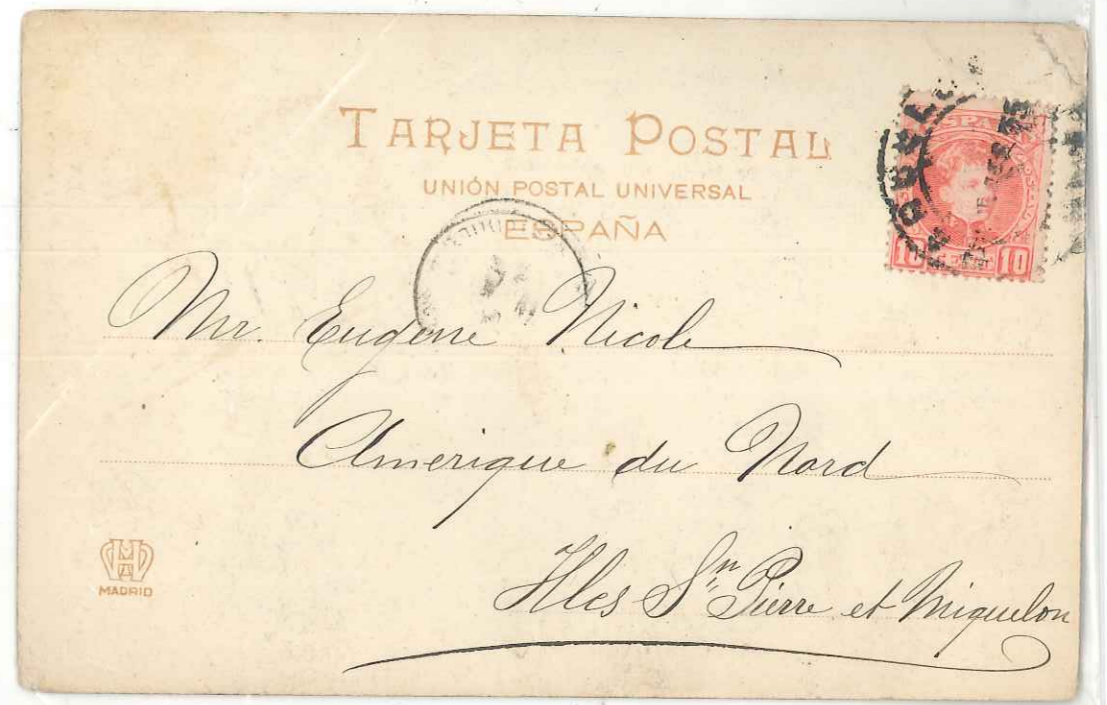 TARJETA POSTAL
UNIÓN POSTAL UNIVERSAL
ESPAÑA
10 10
Mr. Eugene Nicole
Amerique du Nord
Iles Sn Pierre et Miquelon
MADRID